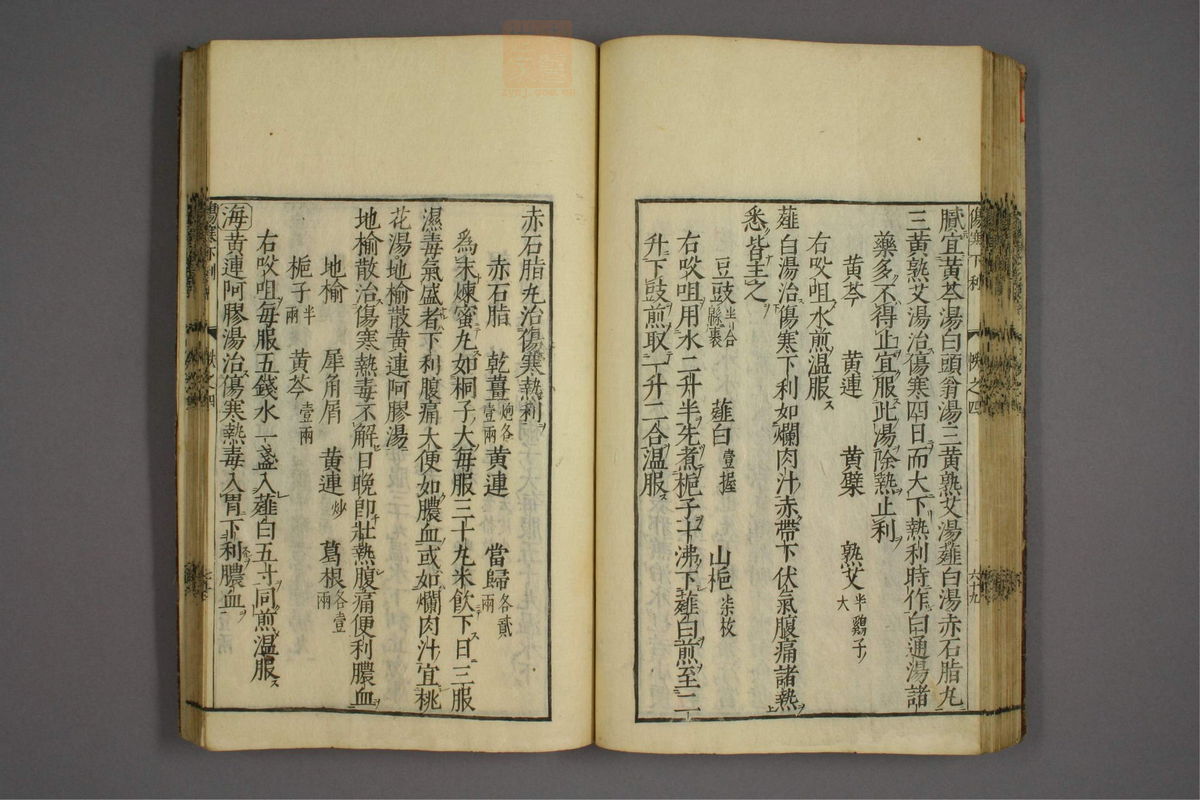 膩宜黃芩湯白頭翁湯三黃熟艾湯薤白湯赤石脂丸
三黃熟艾湯治傷寒四日而大下熱利時作白通湯諸
藥多不得止宜服此湯除熱止利
黃芩 黃連 黃檗 熟艾半鷄子大
右㕮咀水煎溫服
薤白湯治傷寒下利如爛肉汁赤帶下伏氣腹痛諸熱
悉皆主之
豆豉半合綿裹 薤白壹握 山梔柒枚
右㕮咀用水二升半先煮梔子十沸下薤白煎至二
升下豉煎取一升二合溫服
赤石脂丸治傷寒熱利
赤石脂 乾薑炮各壹兩 黃連 當歸各貳兩
爲末煉蜜丸如桐子大每服三十丸米飲下日三服
濕毒氣盛者下利腹痛大便如膿血或如爛肉汁宜桃
花湯地榆散黃連阿膠湯
地榆散治傷寒熱毒不解日晚卽壯熱腹痛便利膿血
地榆 犀角屑 黃連炒 葛根各壹兩
梔子半兩 黃芩壹兩
右㕮咀每服五錢水一盞入薤白五寸同煎溫服
海黃連阿膠湯治傷寒熱毒入胃下利膿血